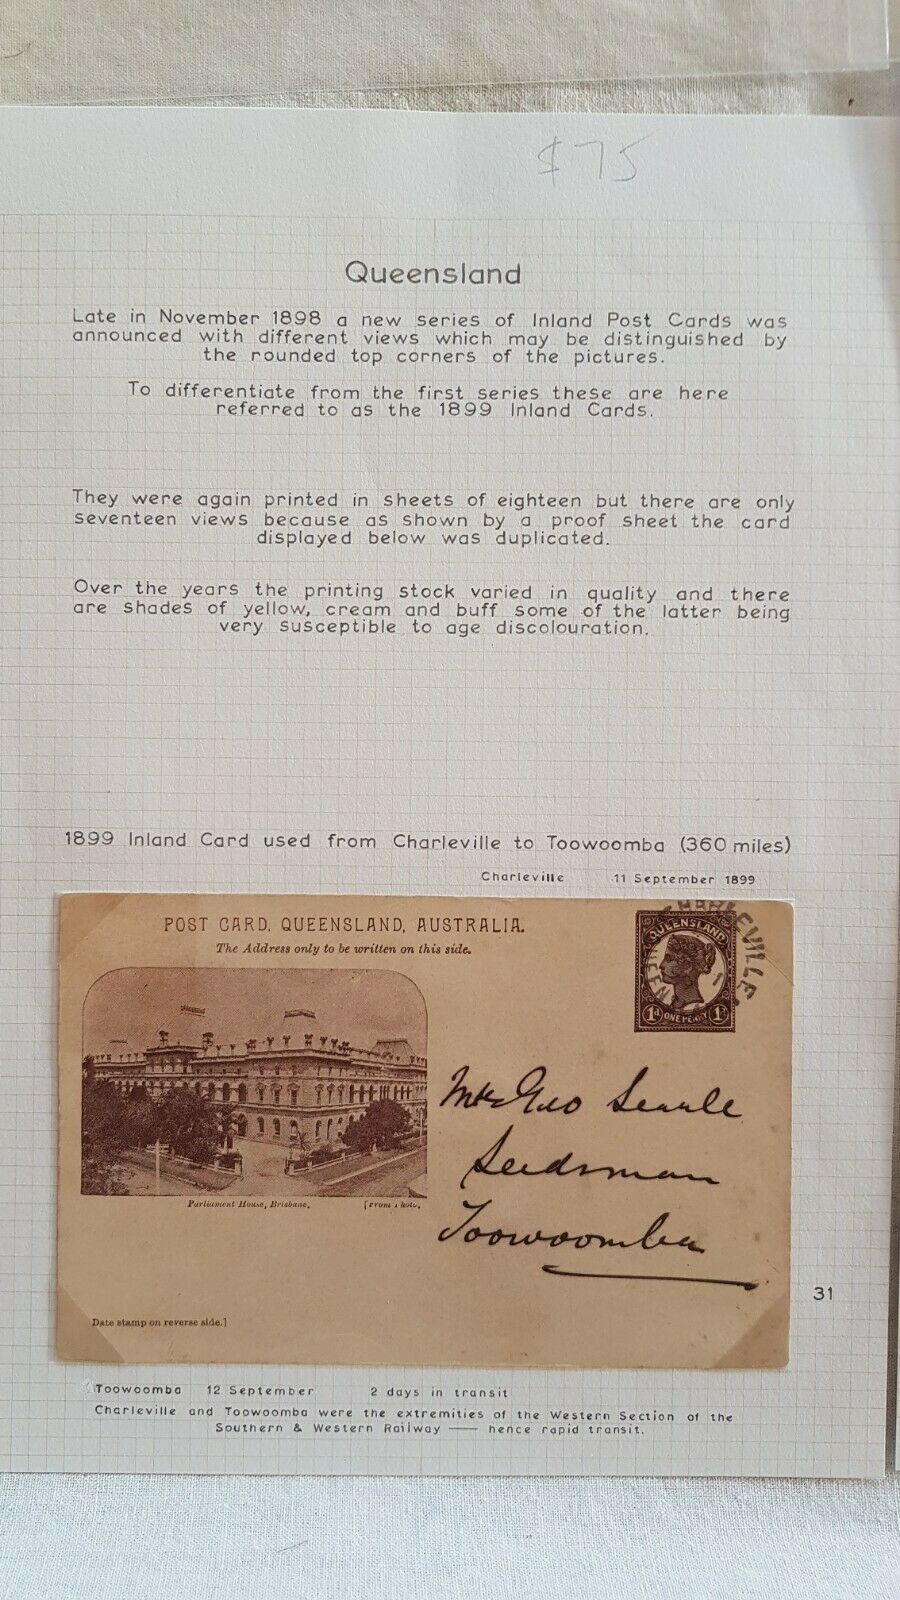 $75
Queensland
Late in November 1898 a new series of Inland Post Cards was
announced with different views which may be distinguished by
the rounded top corners of the pictures.
To differentiate from the first series these are here
referred to as the 1899 Inland Cards.
They were again printed in sheets of eighteen but there are only
seventeen views because as shown by a proof sheet the card
displayed below was duplicated.
Over the years the printing stock varied in quality and there
are shades of yellow, cream and buff some of the latter being
very susceptible to age discolouration.
1899 Inland Card used from Charleville to Toowoomba (360 miles)
Charleville 11 September 1899
POST CARD, QUEENSLAND, AUSTRALIA.
The Address only to be written on this side.
CHARLEVILLE
QUEENSLAND
1d ONE PENNY 1d
Mr Geo Searle
Seedsman
Toowoomba
Parliament House, Brisbane, [From Photo.
Date stamp on reverse side.]
31
Toowoomba 12 September 2 days in transit
Charleville and Toowoomba were the extremities of the Western Section of the
Southern & Western Railway — hence rapid transit.